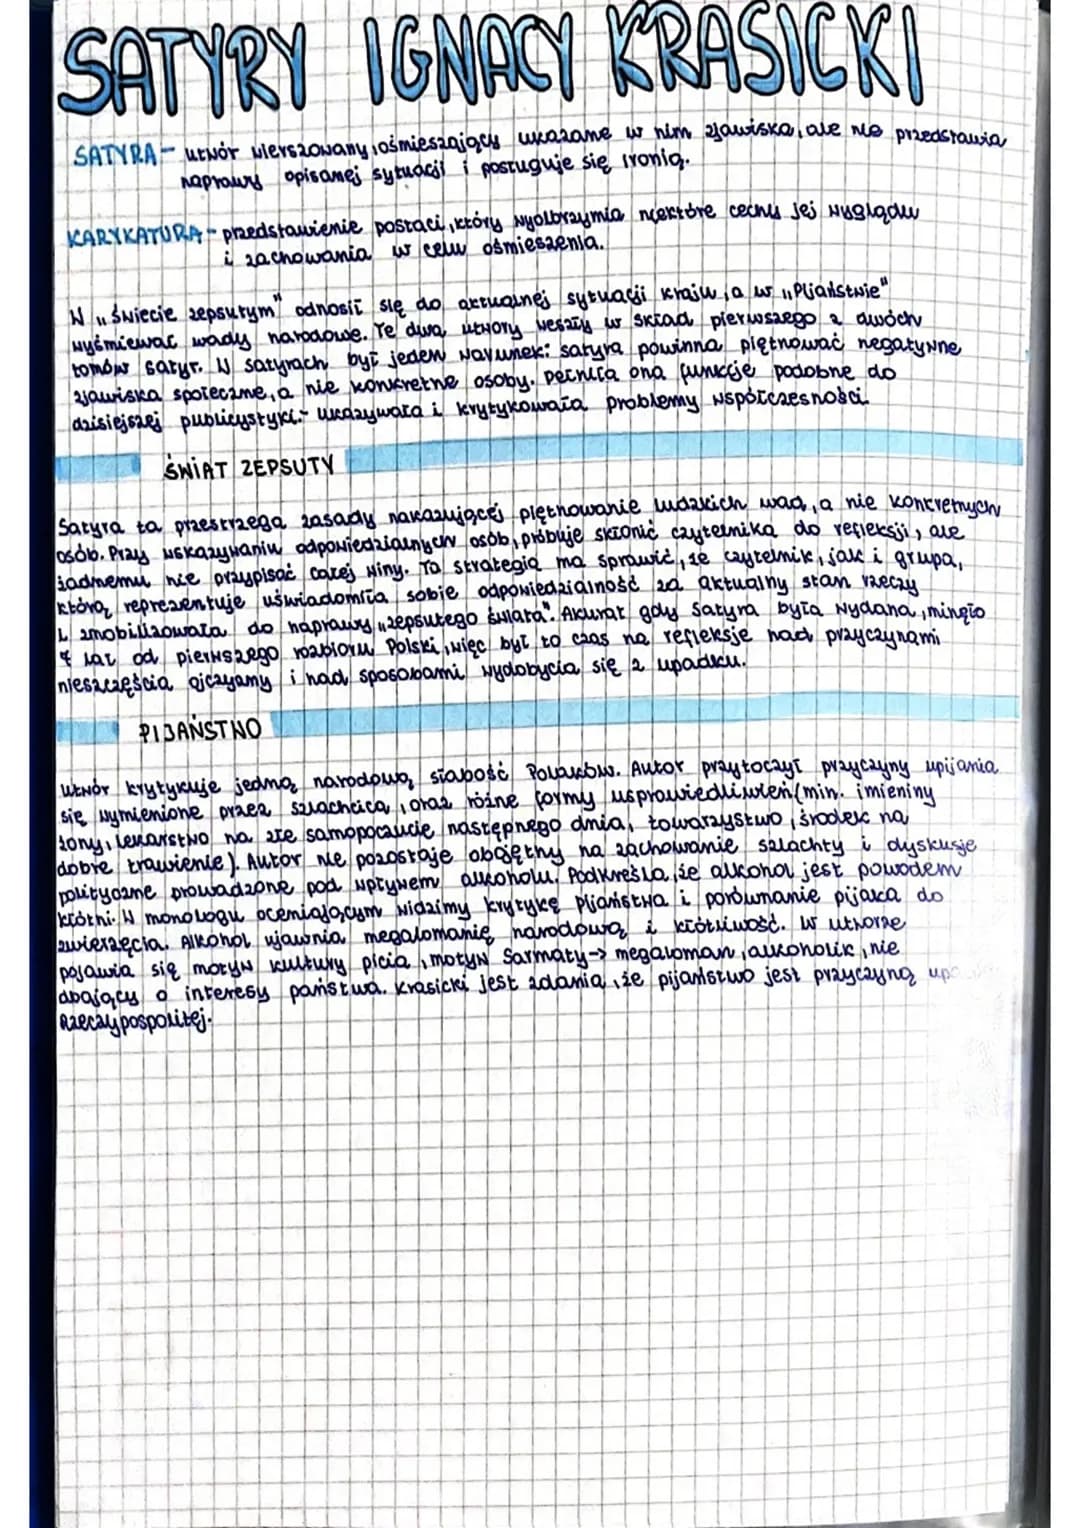 SATYRY IGNACY KRASICKI
SATYRA - utwór wierszowany, ośmieszający ukazane w nim zjawiska, ale nie przedstawia
naprawy opisanej sytuacji i posługuje się ironią.
KARYKATURA - przedstawienie postaci, który wyolbrzymia niektóre cechy jej wyglądu
i zachowania w celu ośmieszenia.
W „świecie zepsutym" odnosił się do aktualnej sytuacji kraju, a w „Pijaństwie"
wyśmiewać wady narodowe. Te dwa utwory weszły w skład pierwszego z dwóch
tomów satyr. W satyrach był jeden warunek: satyra powinna piętnować negatywne
zjawiska społeczne, a nie konkretne osoby. Pełniła ona funkcje podobne do
dzisiejszej publicystyki - ukazywała i krytykowała problemy współczesności.
ŚWIAT ZEPSUTY
Satyra ta przestrzega zasady nakazującej piętnowanie ludzkich wad, a nie konkretnych
osób. Przy wskazywaniu odpowiedzialnych osób, próbuje skłonić czytelnika do refleksji, ale
żadnemu nie przypisać całej winy. Ta strategia ma sprawić, że czytelnik, jak i grupa,
którą reprezentuje uświadomiła sobie odpowiedzialność za aktualny stan rzeczy
i zmobilizowała do naprawy „zepsutego świata". Akurat gdy Satyra była wydana, minęło
7 lat od pierwszego rozbioru Polski, więc był to czas na refleksje nad przyczynami
nieszczęścia ojczyzny i nad sposobami wydobycia się z upadku.
PIJAŃSTWO
Utwór krytykuje jedną narodową słabość Polaków. Autor przytoczył przyczyny upijania
się wymienione przez szlachcica, oraz różne formy usprawiedliwień (min. imieniny
żony, lekarstwo na złe samopoczucie następnego dnia, towarzystwo, środek na
dobre trawienie). Autor nie pozostaje obojętny na zachowanie szlachty i dyskusje
polityczne prowadzone pod wpływem alkoholu. Podkreśla, że alkohol jest powodem
kłótni. W monologu oceniającym widzimy krytykę pijaństwa i porównanie pijaka do
zwierzęcia. Alkohol ujawnia megalomanię narodową i kłótliwość. W utworze
pojawia się motyw kultury picia, motyw Sarmaty -> megaloman, alkoholik, nie
dbający o interesy państwa. Krasicki jest zdania, że pijaństwo jest przyczyną
Rzeczypospolitej.